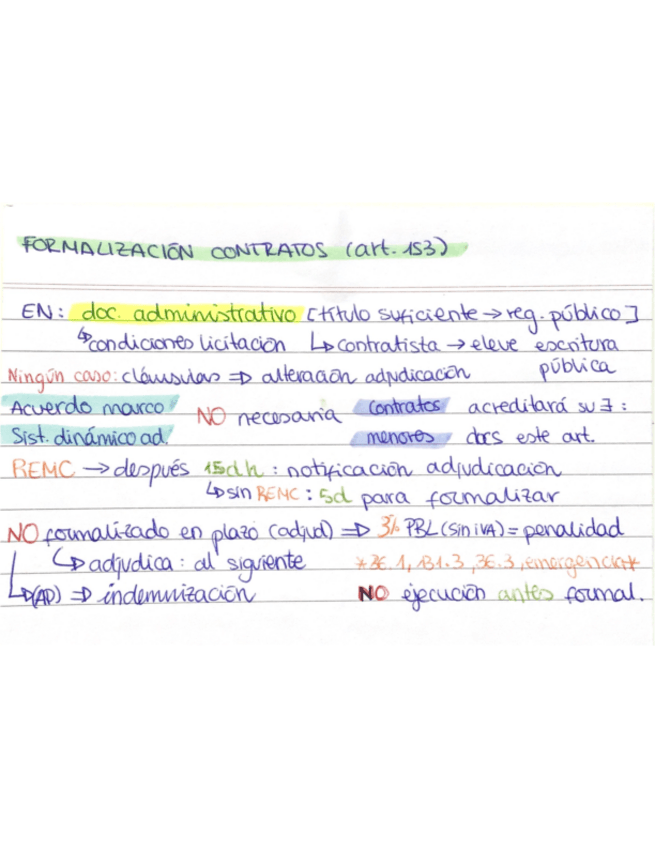 FORMALIZACIÓN CONTRATOS (art. 153)
EN: doc. administrativo [título suficiente → reg. público]
↳ condiciones licitación ↳ contratista → eleve escritura pública
Ningún caso: cláusulas ⇒ alteración adjudicación
Acuerdo marco NO necesaria contratos acreditará su ∃:
Sist. dinámico ad. menores docs este art.
REMC → después 15d.h: notificación adjudicación
↳ sin REMC: 5d para formalizar
NO formalizado en plazo (adjud) ⇒ 3% PBL (sin IVA) = penalidad
↳ adjudica: al siguiente *36.1, 131.3, 36.3, emergencia*
↳ (AP) ⇒ indemnización NO ejecución antes formal.